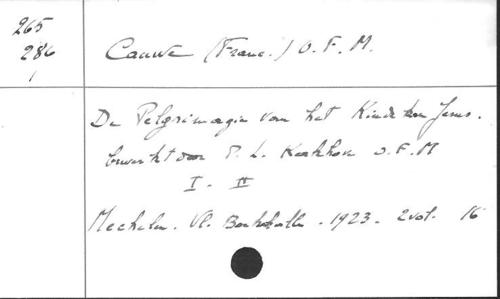 265
286
Cauwe (Franc.) O.F.M.
De Pelgrimagie van het Kindeken Jesus.
bewerkt door P. L. Kerkhove O.F.M
I - II
Mechelen. Vl. Boekhalle. 1923. 2 vol. 16